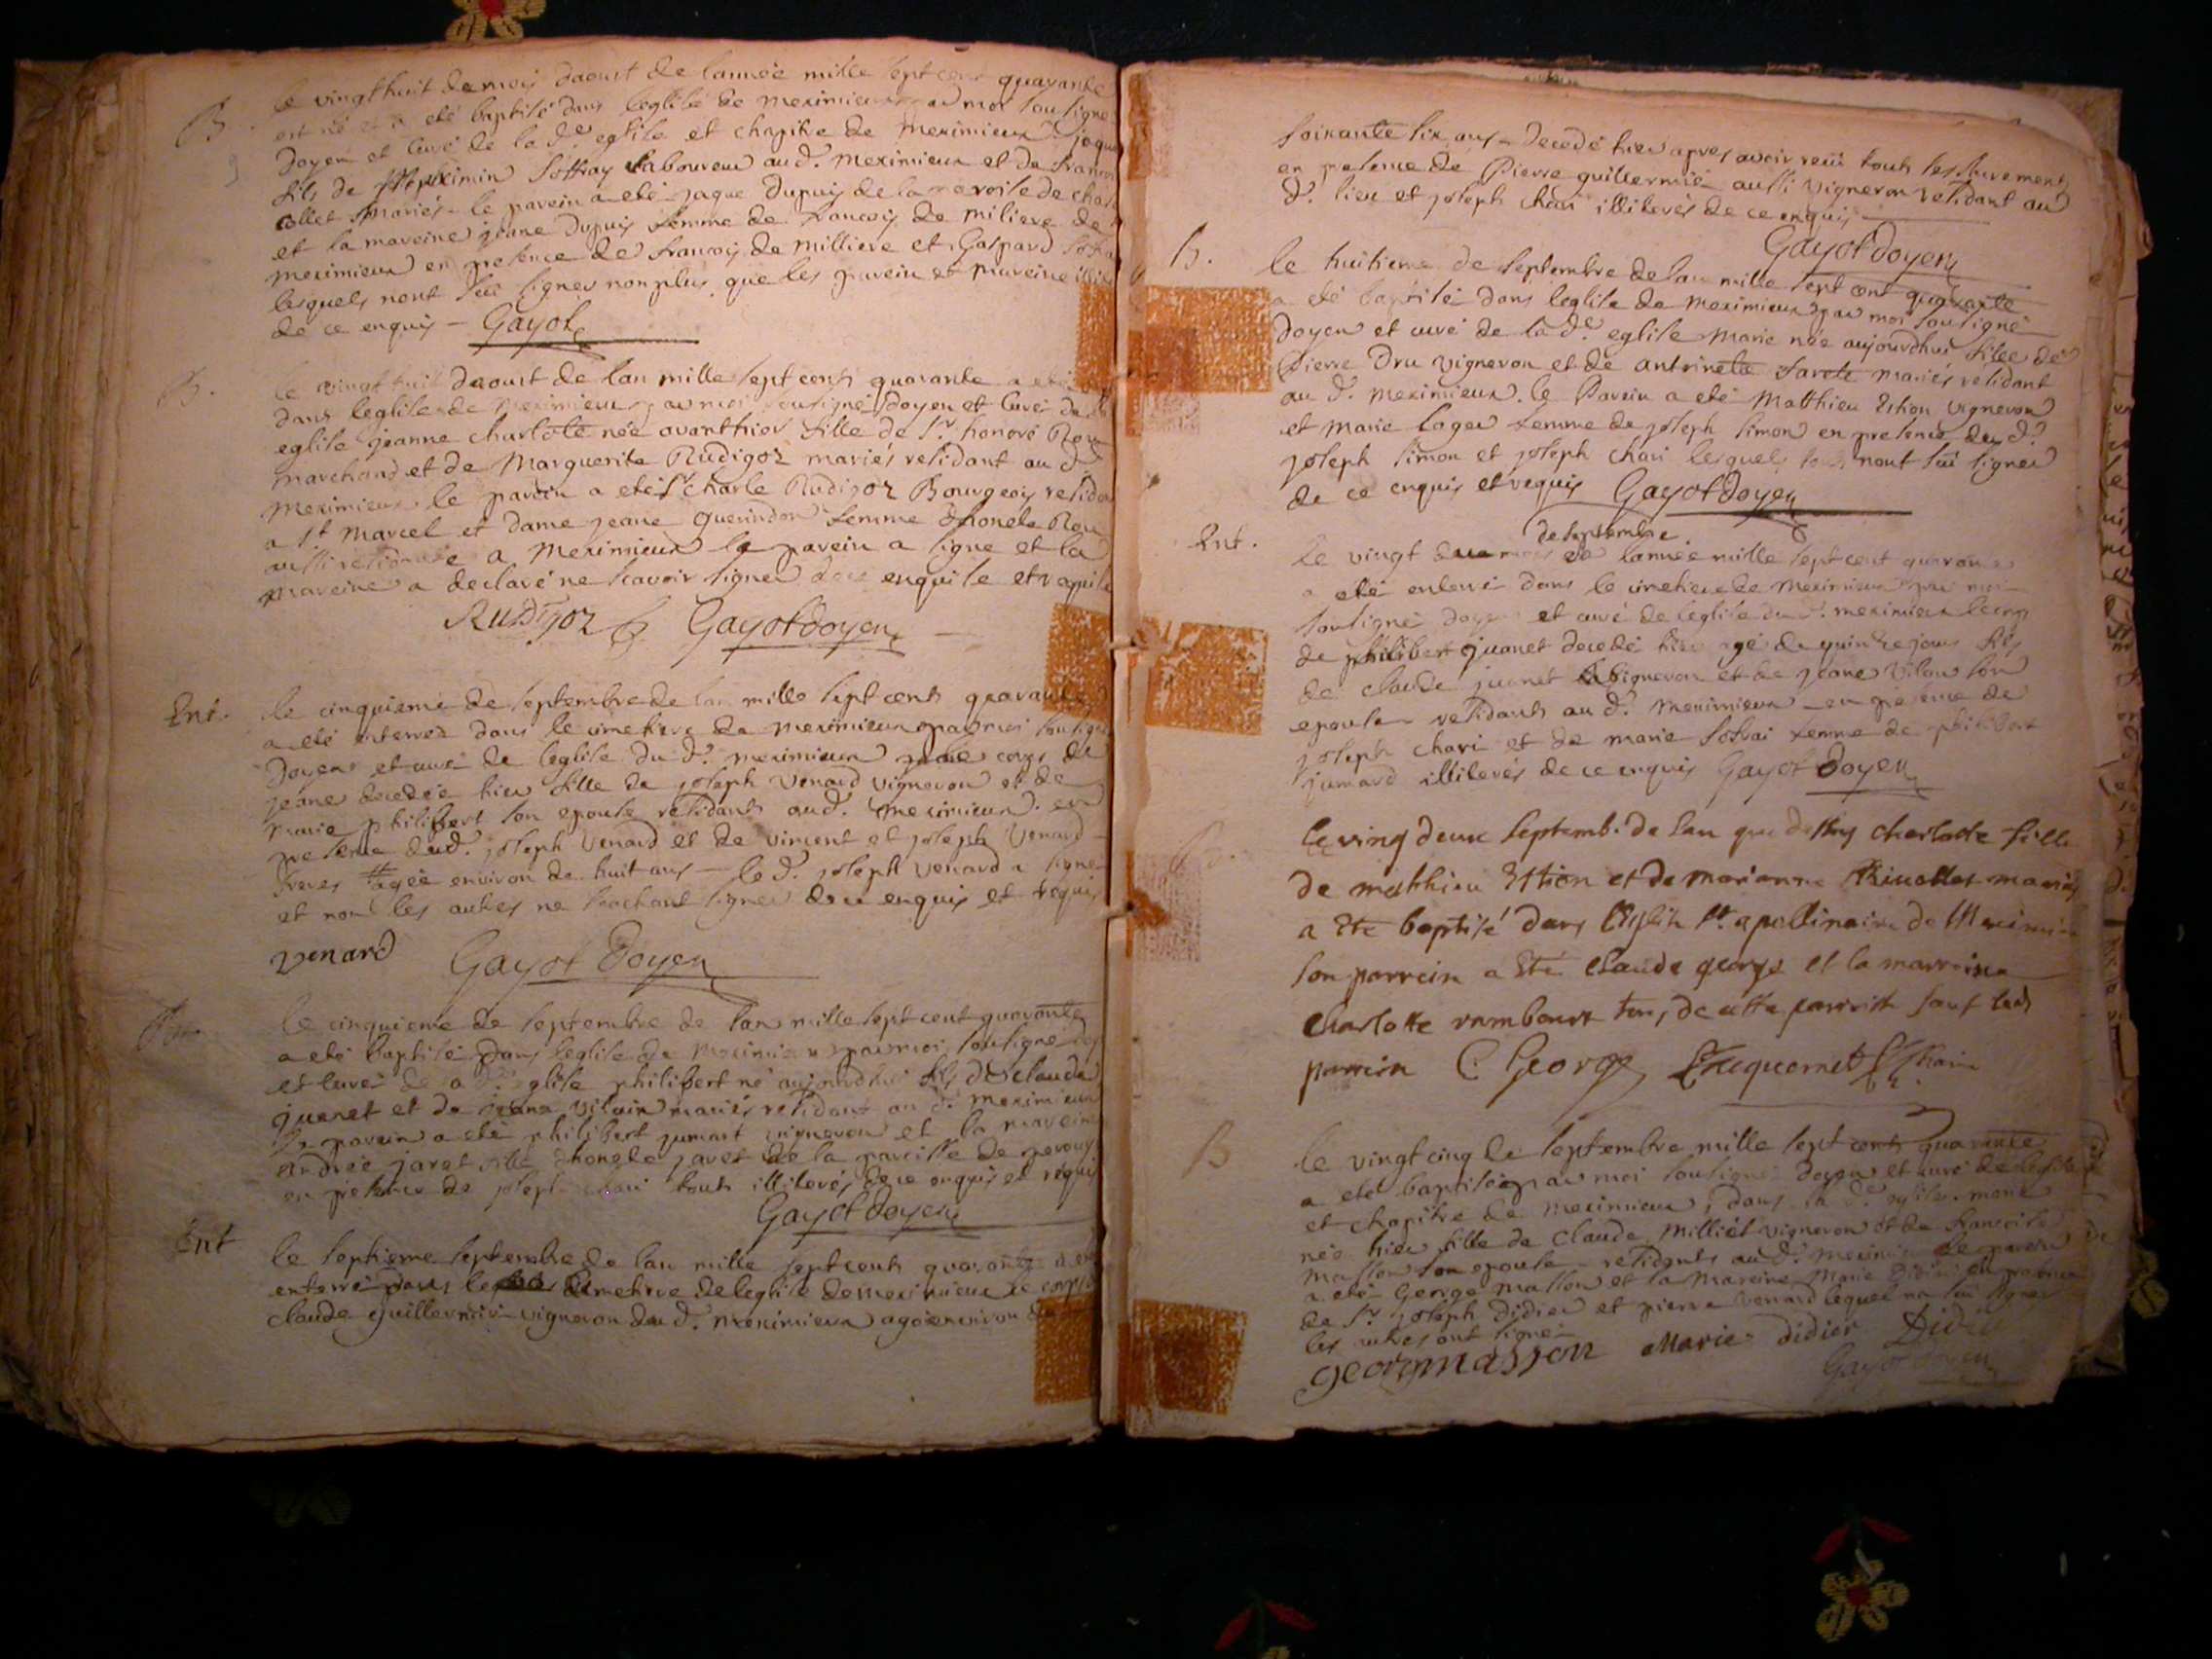 B. le vingt huit de mois daoust de lannée mille sept cens quarante
est né et a eté baptisé dans leglise de meximieux par moi sousigné
doyen et curé de la de. eglise et chapitre de meximieux jaque
fils de Meximin Soffray laboureur aud. meximieux et de francoi
collet mariés le parein a eté jaque Dupuis de la paroise de
et la mareine jeane Dupuis femme de francois de miliere de
meximieux en presence de francois de milliere et Gaspard
lesquels nont sceu signer non plus que les parein et mareine
de ce enquis - Gayot
B. le vingt huit daoust de lan mille sept cents quarante a eté
dans leglise de meximieux par moi sousigné doyen et curé de
eglise jeanne charlote née avanthier fille de Sr. honoré Rou
marchand et de Marguerite Rudigoz mariés residant au d.
meximieux le parein a eté Sr charle Rudigoz Bourgeois
a St Marcel et dame jeane guerindon femme dhonete Rou
aussi residente a meximieux le parein a signé et la
mareine a declaré ne scavoir signer de ce enquise et requise
Rudigoz Gayot doyen
Ent. le cinquieme de septembre de lan mille sept cents quarante
a eté enterrée dans le cimetiere de meximieux par moi sousigné
doyen et curé de leglise du d. meximieux le corps de
jeane decedée hier fille de joseph venard vigneron et de
marie philibert son epouse residants aud. meximieux. en
presence dud. joseph venard et de vincent et joseph venard
freres agée environ de huit ans - le d. joseph venard a signé
et non les autres ne sachant signer de ce enquis et requis
venard Gayot doyen
le cinquieme de septembre de lan mille sept cent quarante
a eté baptisé dans leglise de meximieux par moi sousigné
et curé de la de. eglise philibert né aujourdhui fils de claude
juenet et de jeane vilain mariés residant au d. meximieux
le parein a eté philibert jumart vigneron et la mareine
andrée jaret fille dhonete jaret de la paroisse de perouge
en presence de joseph chari touts illiterés de ce enquis et requis
Gayot doyen
Ent le septieme septembre de lan mille sept cents quarante a eté
enterré dans le cimetiere de leglise de meximieux le corps
claude guillermié vigneron du d. meximieux agé environ de
soixante six ans - decedé hier apres avoir receu touts les sacrements
en presence de Pierre guillermié aussi vigneron residant au
d. lieu et joseph chari illiterés de ce enquis
Gayot doyen
B. le huitieme de septembre de lan mille sept cent quarante
a eté baptisé dans leglise de meximieux par moi sousigné
doyen et curé de la de. eglise marie née aujourdhui fille de
Pierre Dru vigneron et de antoinette farete mariés residant
au d. meximieux. le Parein a eté Matthieu Estion vigneron
et marie lager femme de joseph simon en presence du d.
joseph simon et joseph chari lesquels touts nont sceu signer
de ce enquis et requis Gayot doyen
de septembre
Ent. le vingt deux mois de lannée mille sept cent quarante
a eté enterré dans le cimetiere de meximieux par moi
sousigné doyen et curé de leglise du d. meximieux le corps
de philibert juanet decedé hier agé de quinze jours fils
de claude juanet vigneron et de jeane vilain son
epouse residants au d. meximieux en presence de
joseph chari et de marie soffrai femme de philibert
jumard illiterés de ce enquis Gayot doyen
le ving deux septemb. de lan que dessus charlotte fille
de matthieu Estion et de marianne Rivollet mariés
a eté baptisé dans l'Eglise St. apollinaire de Meximieu
son parrein a eté claude george et la marreine
Charlotte rambaud tous de cette paroisse sauf led
parrein C. George
B le vingt cinq de septembre mille sept cents quarante
a eté baptisé par moi sousigné doyen et curé de leglise
et chapitre de meximieux, dans la de. eglise marie
née hier fille de claude milliet vigneron et de francoise
masson son epouse residants aud. meximieux le parein
a eté George masson et la mareine Marie Didier en presence
de Sr joseph Didier et pierre venard lequel na sceu signer
les autres ont signé
george masson Marie didier Didier
Gayot doyen